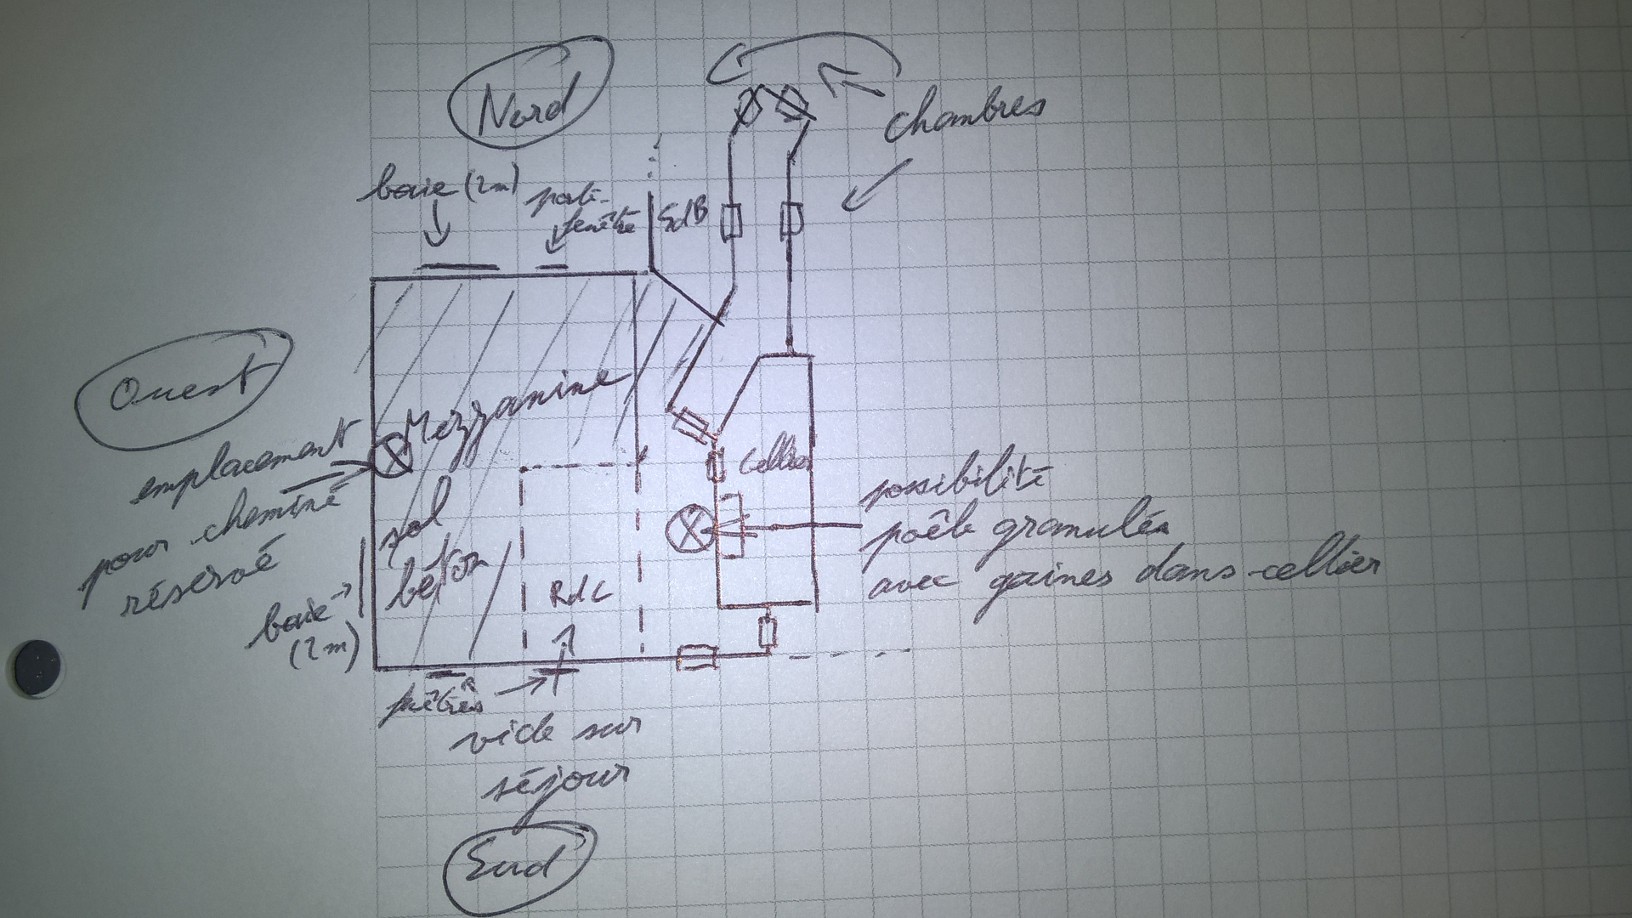 Nord
chambres
baie (2m)
porte-
fenêtre
SdB
Ouest
Mezzanine
emplacement
pour cheminé
réservé
sol
béton
Cellier
possibilité
poêle granulés
avec gaines dans cellier
baie
(2m)
RdC
vide sur
séjour
Sud